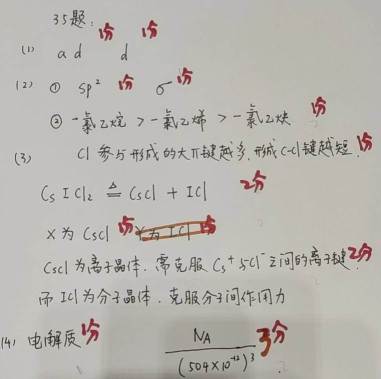 35题: 1分 1分
(1) a d d
(2) ① sp² 1分 σ 1分
② 一氯乙烷 > 一氯乙烯 > 一氯乙炔 1分
(3) Cl 参与形成的大π键越多, 形成C-Cl键越短. 1分
CsICl₂ ≜ CsCl + ICl 2分
X为 CsCl 1分 Y为 ICl 1分
CsCl为离子晶体. 需克服Cs⁺与Cl⁻之间的离子键. 2分
而ICl为分子晶体. 克服分子间作用力
(4) 电解质 1分 N_A / (504×10⁻¹²)³ 3分